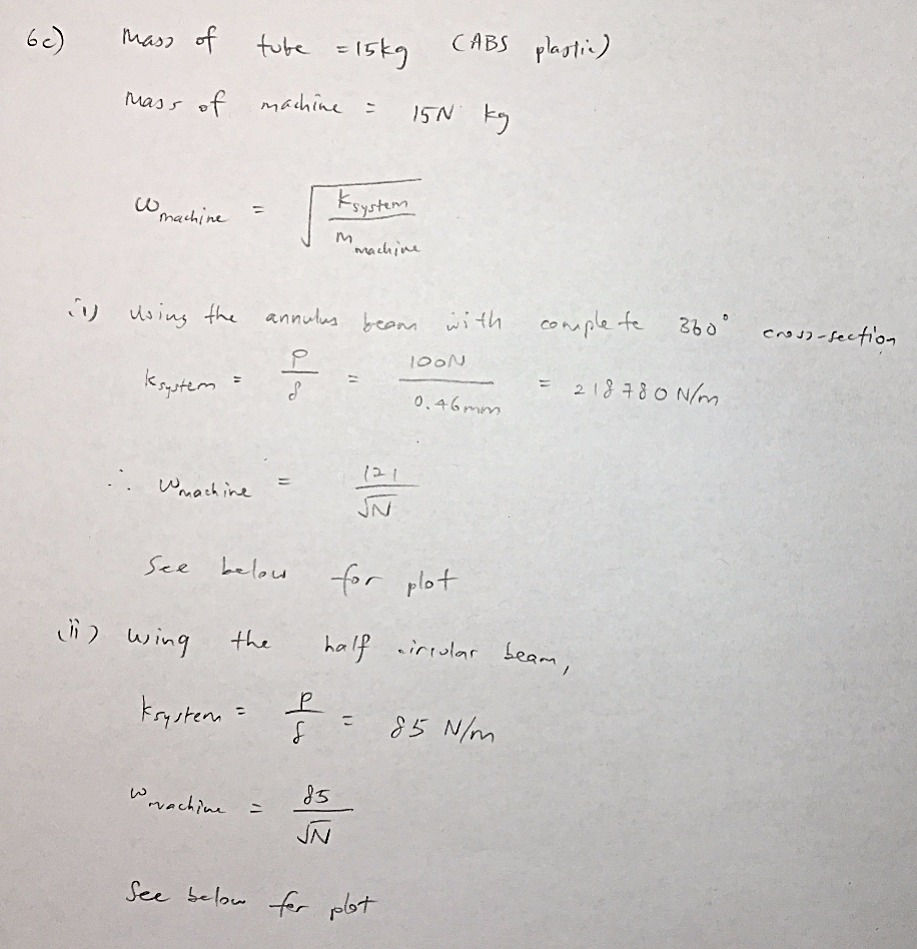 6c) Mass of tube = 15kg (ABS plastic)
Mass of machine = 15N kg
ω machine = √(k system / m machine)
(i) Using the annulus beam with complete 360° cross-section
k system = P/δ = 100N / 0.46mm = 218780 N/m
∴ ω machine = 121 / √N
See below for plot
(ii) Using the half circular beam,
k system = P/δ = 85 N/m
ω machine = 85 / √N
See below for plot